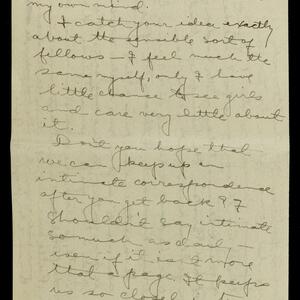 my own mind.
I catch your idea exactly
about the sensible sort of
fellows – I feel much the
same myself, only I have
little chance to see girls
and care very little about
it.
Don't you hope that
we can keep up an
intimate correspondence
after you get back? I
shouldn't say intimate
so much as daily –
even if it is more
that a page. It keeps
us so closely